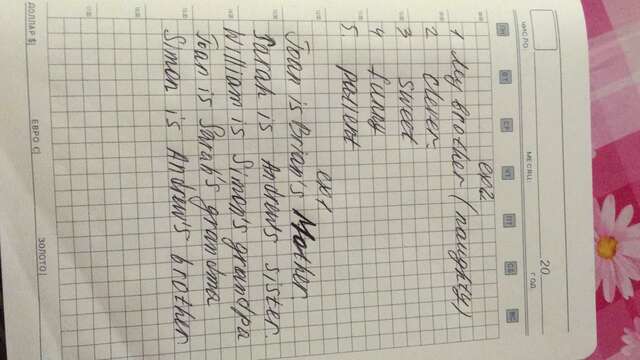 ЧИСЛО
МЕСЯЦ
20
ГОД
ПН ВТ СР ЧТ ПТ СБ ВС
ex 2
1 My brother (naughty)
2 clever
3 sweet
4 funny
5 patient
ex 1
Joan is Brian's Mother
Sarah is Andrew's sister.
William is Simon's grandpa
Joan is Sarah's grandma
Simon is Andrew's brother.
ДОЛЛАР $|
ЕВРО €|
ЗОЛОТО|